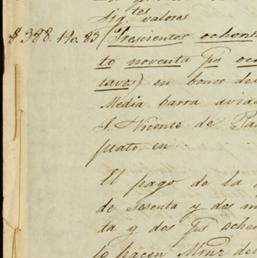 tos
Sigtes valores
$ 388. 110. 83 (Trescientos ochen
to noventa ps oc
tavos) en bonos de
Media barra avia
S. Vicente de Pa
prato, en
El pago de la
de Sesenta y dos m
ta y dos ps oche
lo hacen Mrnz de